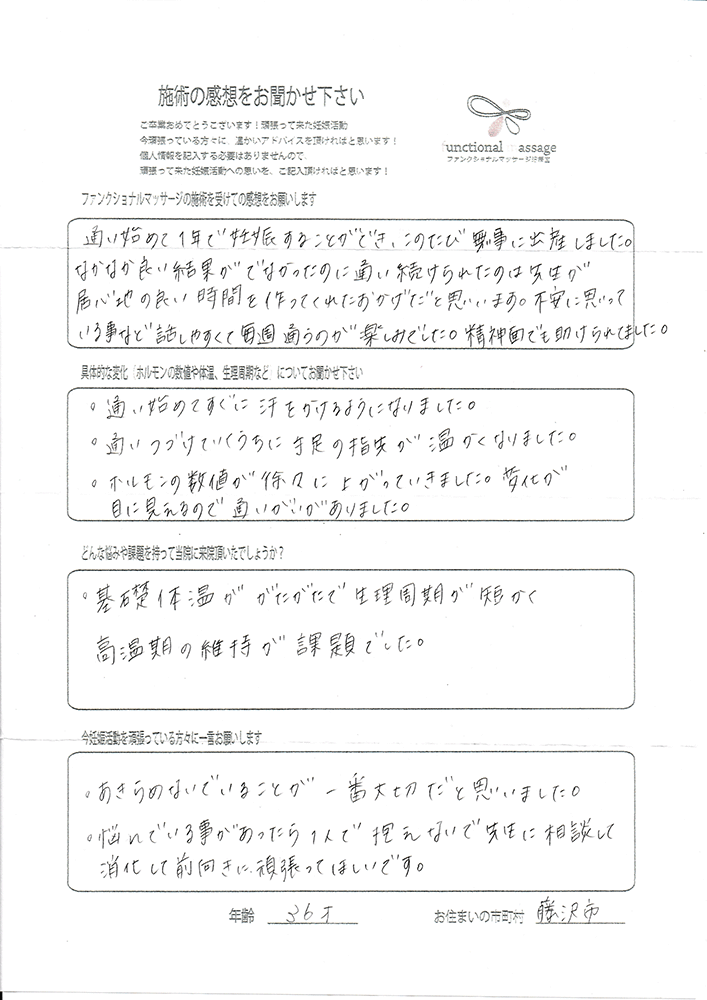 施術の感想をお聞かせ下さい
ご卒業おめでとうございます！頑張って来た妊娠活動
今頑張っている方々に、温かいアドバイスを頂ければと思います！
個人情報を記入する必要はありませんので、
頑張って来た妊娠活動への思いを、ご記入頂ければと思います！
functional massage
ファンクショナルマッサージ治療室
ファンクショナルマッサージの施術を受けての感想をお願いします
通い始めて1年で妊娠することができ、このたび無事に出産しました。
なかなか良い結果がでなかったのに通い続けられたのは先生が
居心地の良い時間を作ってくれたおかげだと思います。不安に思って
いる事など話しやすくて毎週通うのが楽しみでした。精神面でも助けられてました。
具体的な変化「ホルモンの数値や体温、生理周期など」についてお聞かせ下さい
。通い始めてすぐに汗をかけるようになりました。
。通いつづけていくうちに手足の指先が温かくなりました。
。ホルモンの数値が徐々に上がっていきました。変化が
目に見えるので通いがいがありました。
どんな悩みや課題を持って当院に来院頂いたでしょうか？
。基礎体温ががたがたで生理周期が短かく
高温期の維持が課題でした。
今妊娠活動を頑張っている方々に一言お願いします
。あきらめないでいることが一番大切だと思いました。
。悩んでいる事があったら1人で抱えないで先生に相談して
消化して前向きに頑張ってほしいです。
年齢 36才 お住まいの市町村 藤沢市